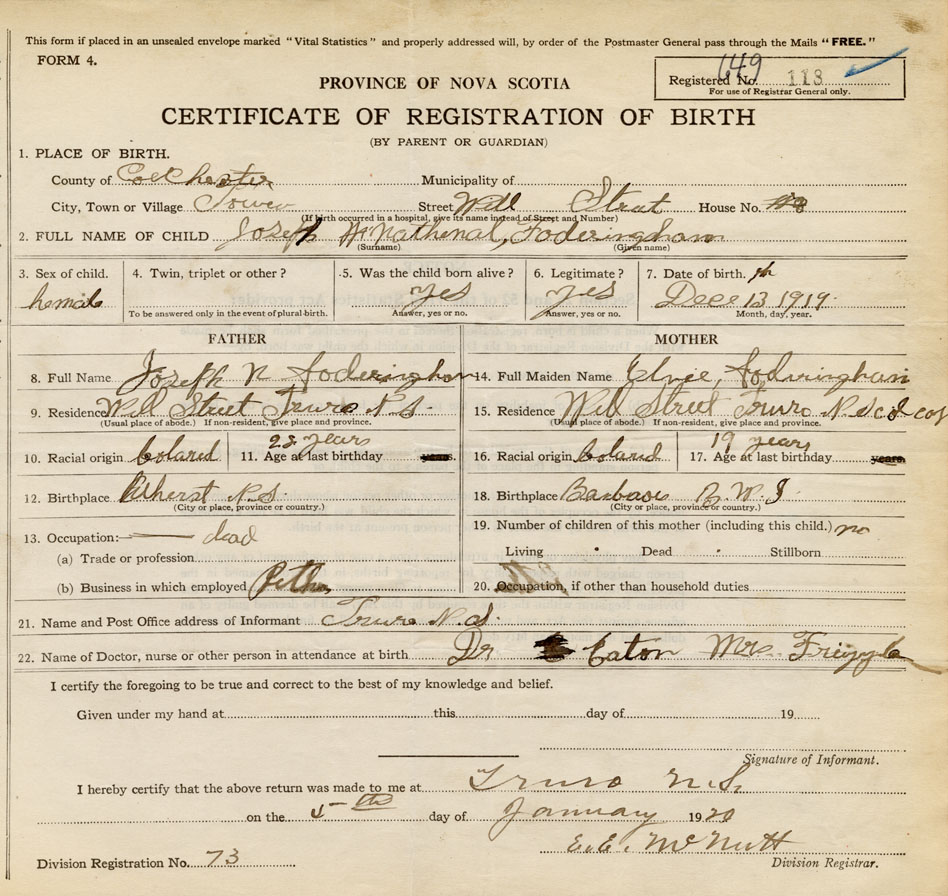 This form if placed in an unsealed envelope marked "Vital Statistics" and properly addressed will, by order of the Postmaster General pass through the Mails "FREE."
FORM 4.
PROVINCE OF NOVA SCOTIA
Registered No. 149 113
For use of Registrar General only.
CERTIFICATE OF REGISTRATION OF BIRTH
(BY PARENT OR GUARDIAN)
1. PLACE OF BIRTH.
County of Colchester Municipality of
City, Town or Village Street Will Strat House No.
(If birth occurred in a hospital, give its name instead of Street and Number)
2. FULL NAME OF CHILD Joseph Nathenal, Foderingham
(Surname) (Given name)
3. Sex of child. 4. Twin, triplet or other? 5. Was the child born alive? 6. Legitimate? 7. Date of birth.
yes yes Dece 13th 1919.
To be answered only in the event of plural birth. Answer, yes or no. Answer, yes or no. Month, day, year.
FATHER MOTHER
8. Full Name Joseph N Foderingham 14. Full Maiden Name Elvie, Foderingham
9. Residence Will Street Truro N.S. 15. Residence Will Street Truro N.S
(Usual place of abode.) If non-resident, give place and province. (Usual place of abode.) If non-resident, give place and province.
10. Racial origin Colard 11. Age at last birthday 22 years years. 16. Racial origin Colard 17. Age at last birthday 19 years years.
12. Birthplace Amherst N.S. 18. Birthplace Barbaos B.W.I
(City or place, province or country.) (City or place, province or country.)
13. Occupation:— dead 19. Number of children of this mother (including this child.) no
(a) Trade or profession Living Dead Stillborn
(b) Business in which employed 20. Occupation, if other than household duties
21. Name and Post Office address of Informant Truro N.S.
22. Name of Doctor, nurse or other person in attendance at birth Dr Eaton Mrs.
I certify the foregoing to be true and correct to the best of my knowledge and belief.
Given under my hand at this day of 19
Signature of Informant.
I hereby certify that the above return was made to me at Truro N.S.
on the 5th day of January 1920
E.E. McNutt
Division Registration No. 73 Division Registrar.